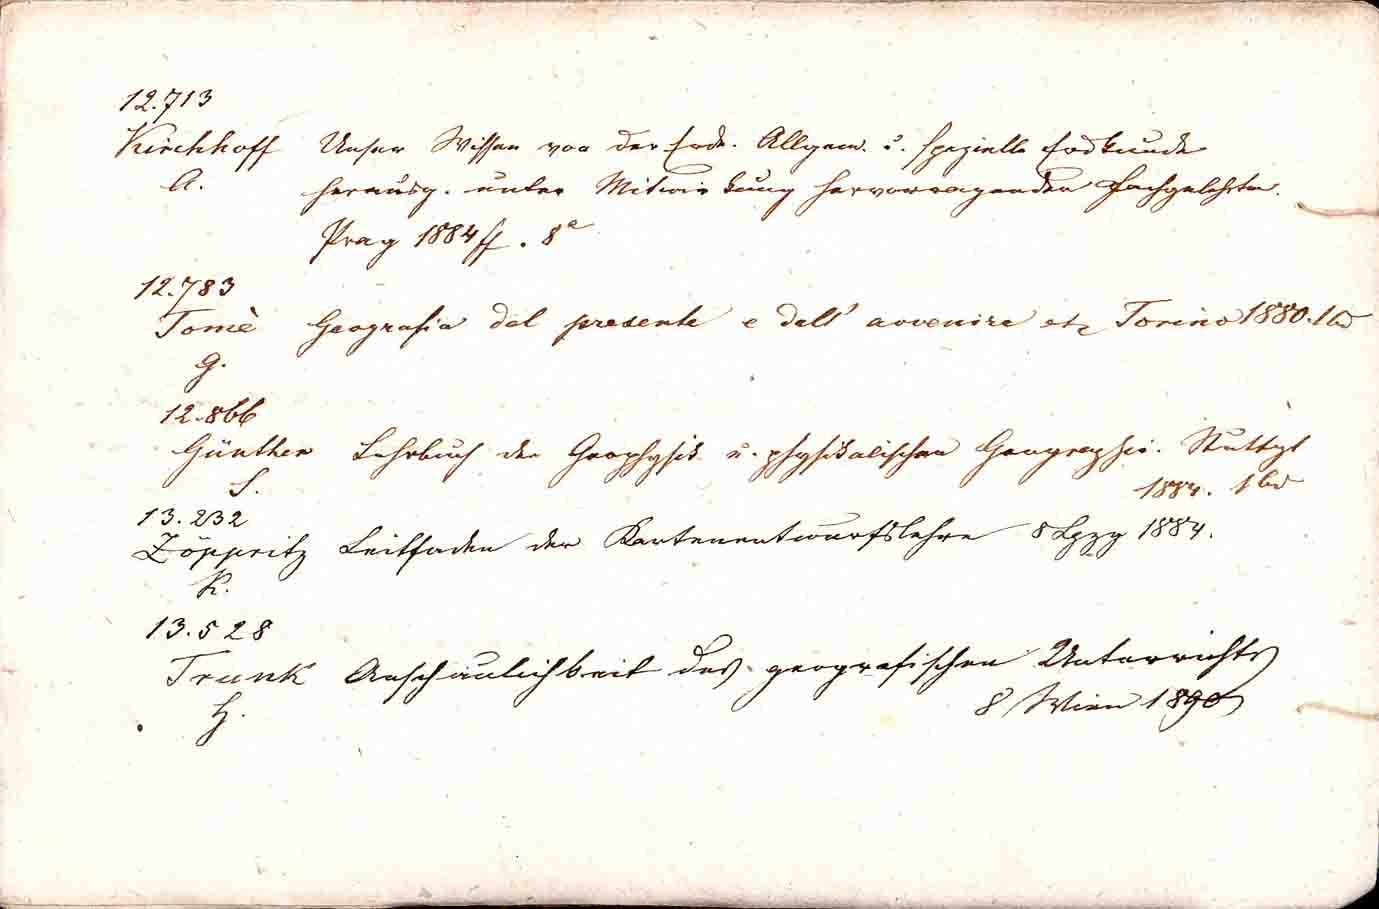 12.713
Kirchhoff Unser Wissen von der Erde. Allgem. u. spezielle Erdkunde
A. herausg. unter Mitwirkung hervorragender Fachgelehrten.
Prag 1884 ff. 8°
12.783
Tomè Geografia del presente e dell' avvenire etz Torino 1880. 1 Bd
G.
12.866
Günther Lehrbuch der Geophysik u. physikalischen Geographie. Stuttgt
S. 1884. 1 Bd
13.232
Zöppritz Leitfaden der Kartenentwurfslehre 8 Lpzg 1884.
K.
13.528
Trunk Anschaulichkeit des geografischen Unterrichts
H. 8 Wien 1890